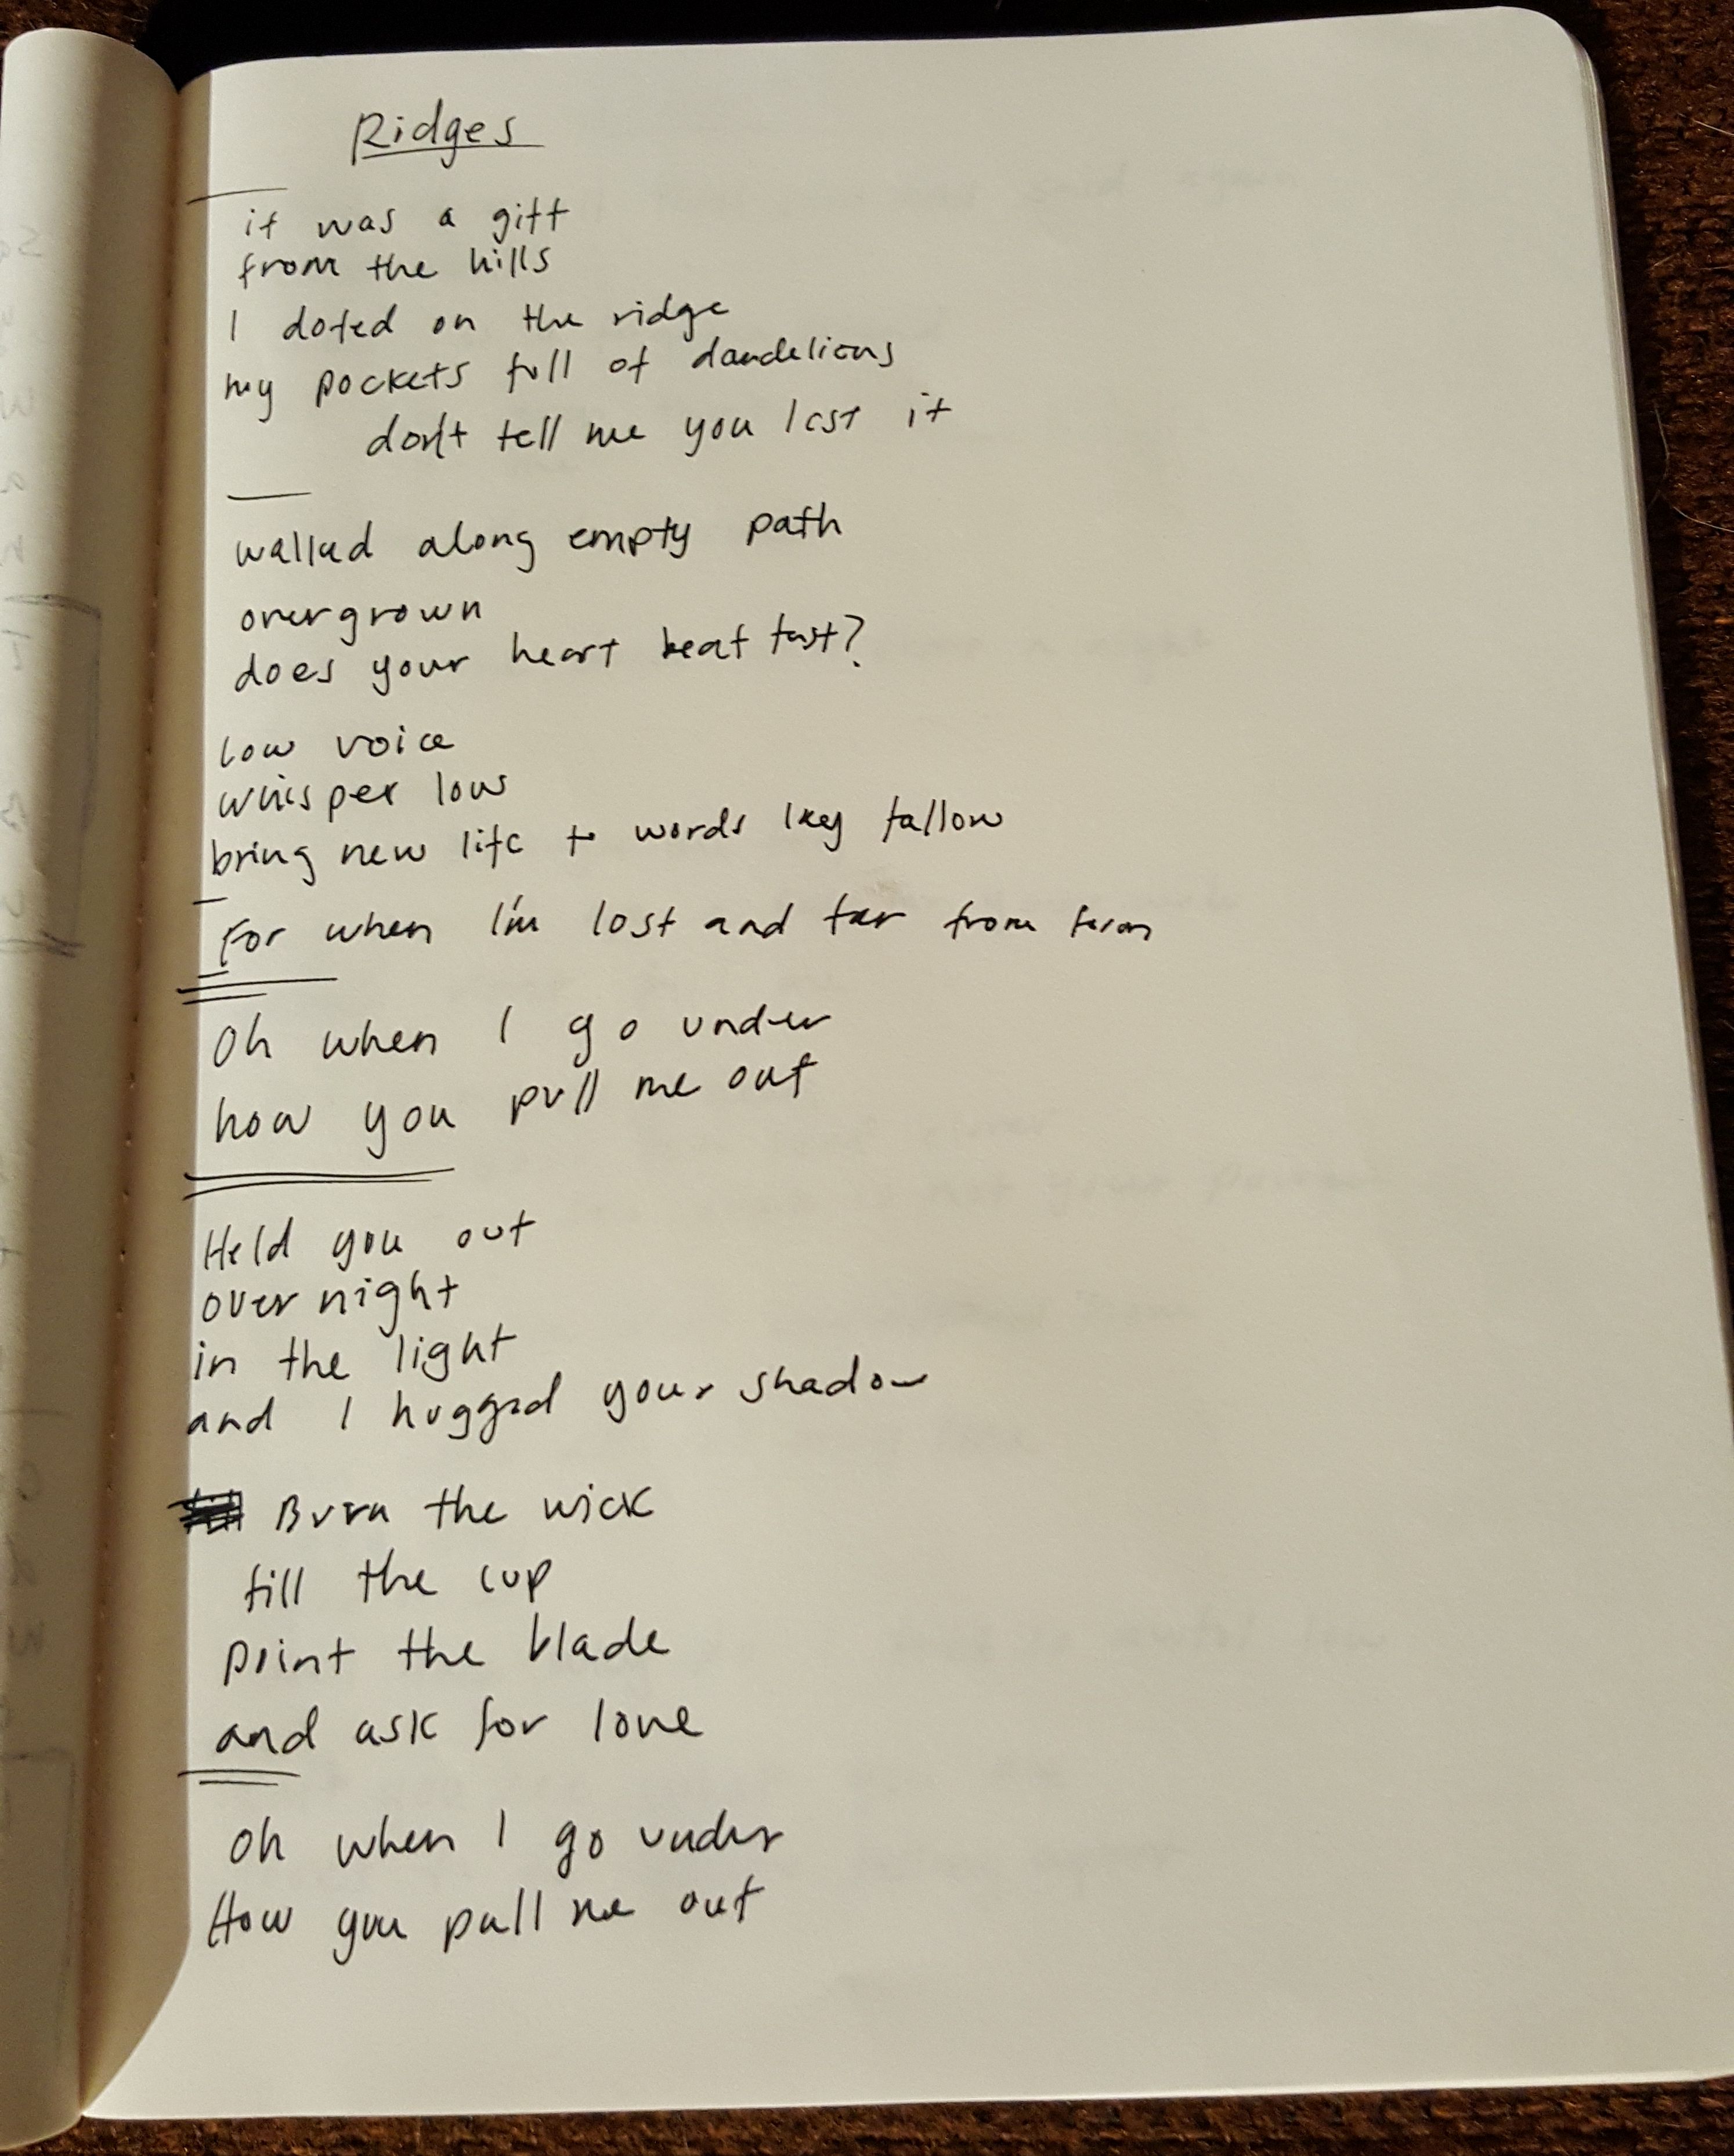 Ridges
it was a gift
from the hills
I doted on the ridge
my pockets full of dandelions
don't tell me you lost it
walked along empty path
overgrown
does your heart beat fast?
low voice
whisper low
bring new life to words fallow
For when I'm lost and far from
Oh when I go under
how you pull me out
Held you out
over night
in the light
and I hugged your shadow
Burn the wick
fill the cup
point the blade
and ask for love
Oh when I go under
How you pull me out